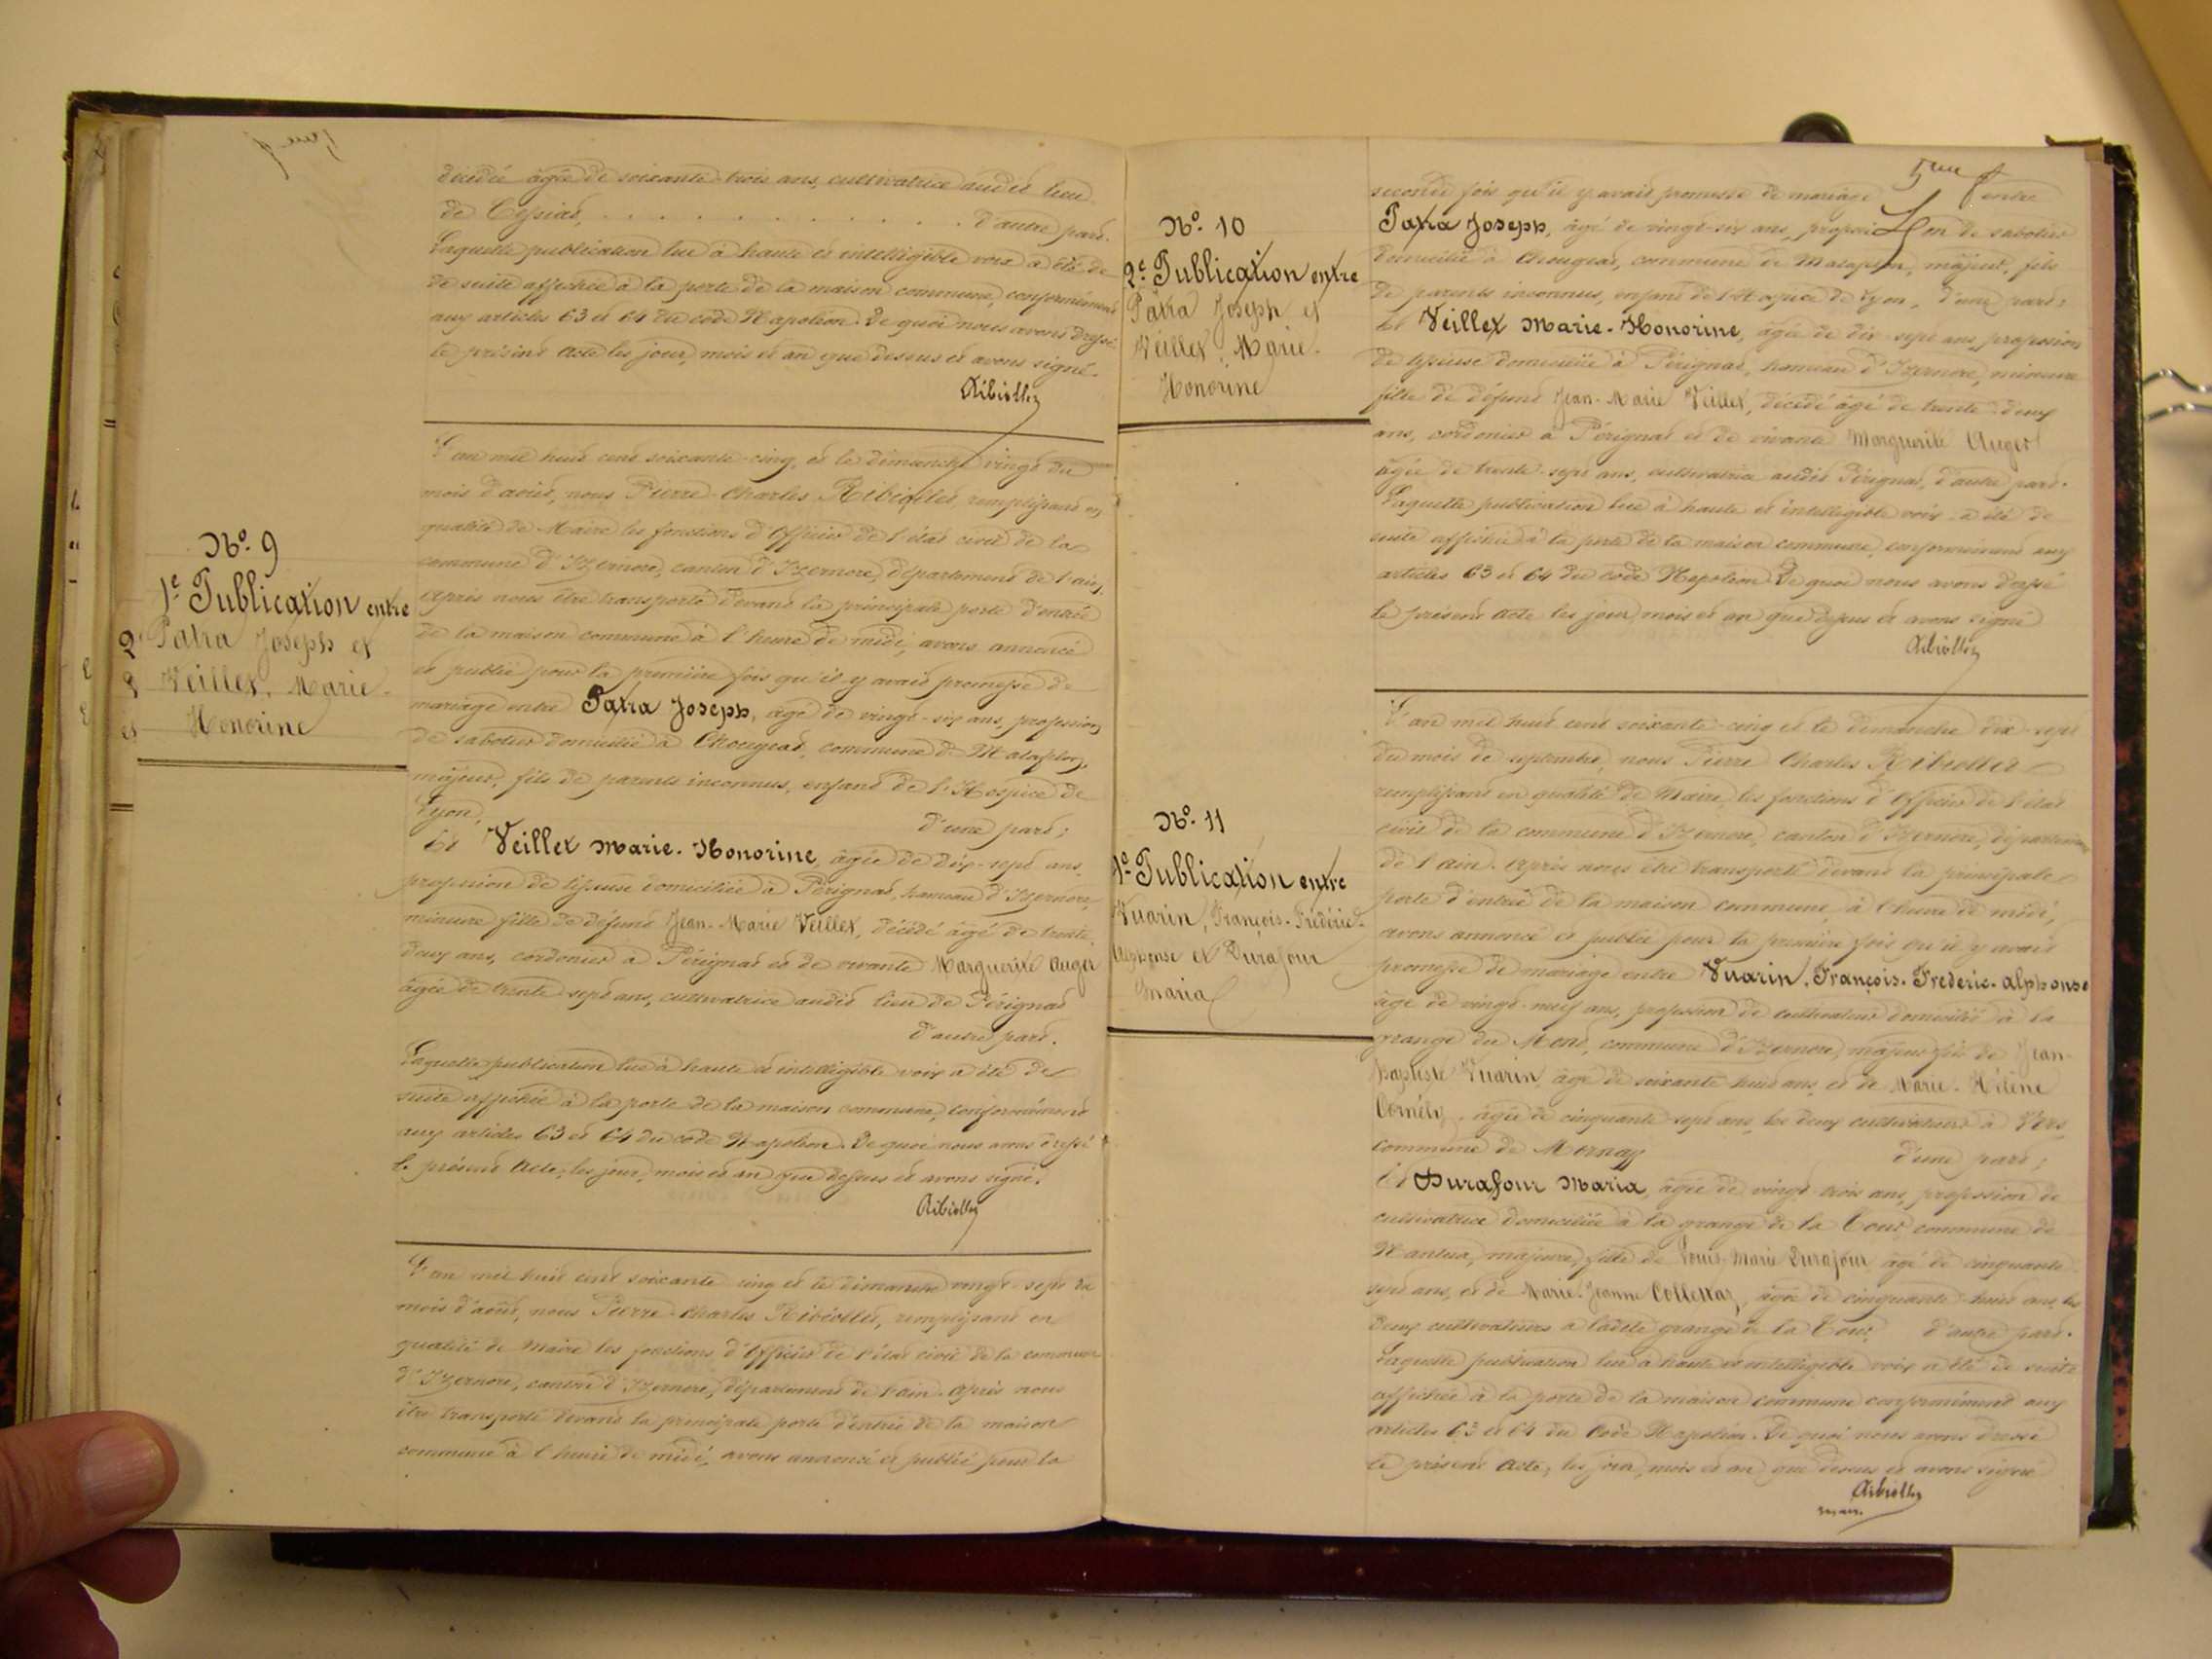 décédée âgée de soixante-trois ans, cultivatrice audit lieu
de Cessiat, . . . . . . . . . . . . . d'autre part.
Laquelle publication lue à haute et intelligible voix a été de
suite affichée à la porte de la maison commune, conformément
aux articles 63 et 64 du code Napoléon. De quoi nous avons dressé
le présent acte les jour, mois et an que dessus et avons signé.
N.º 9
1.e Publication entre
Patra Joseph et
Veillet, Marie-
Honorine
L'an mil huit cent soixante-cinq, et le dimanche vingt du
mois d'août, nous Pierre-Charles Ribiollet, remplissant en
qualité de Maire les fonctions d'Officier de l'état civil de la
commune d'Izernore, canton d'Izernore, département de l'ain,
après nous être transporté devant la principale porte d'entrée
de la maison commune à l'heure de midi, avons annoncé
et publié pour la première fois qu'il y avait promesse de
mariage entre Patra Joseph, âgé de vingt-six ans, profession
de sabotier domicilié à Chougeat, commune de Matafelon,
majeur, fils de parents inconnus, enfant de l'Hospice de
Lyon, d'une part;
Et Veillet Marie-Honorine, âgée de dix-sept ans,
profession de tisseuse domiciliée à Pérignat, hameau d'Izernore,
mineure fille de défunt Jean-Marie Veillet, décédé âgé de trente-
deux ans, cordonier à Pérignat et de vivante Marguerite Auger
âgée de trente-sept ans, cultivatrice audit lieu de Pérignat
d'autre part.
Laquelle publication lue à haute et intelligible voix a été de
suite affichée à la porte de la maison commune, conformément
aux articles 63 et 64 du code Napoléon. De quoi nous avons dressé
le présent Acte, les jour, mois et an que dessus et avons signé.
L'an mil huit cent soixante-cinq et le dimanche vingt-sept du
mois d'août, nous Pierre-Charles Ribiollet, remplissant en
qualité de Maire les fonctions d'Officier de l'état civil de la commune
d'Izernore, canton d'Izernore, département de l'ain. Après nous
être transporté devant la principale porte d'entrée de la maison
commune à l'heure de midi, avons annoncé et publié pour la
N.º 10
2.e Publication entre
Patra Joseph et
Veillet, Marie-
Honorine
seconde fois qu'il y avait promesse de mariage entre
Patra Joseph, âgé de vingt-six ans, profession de sabotier
domicilié à Chougeat, commune de Matafelon, majeur, fils
de parents inconnus, enfant de l'Hospice de Lyon, d'une part;
Et Veillet Marie-Honorine, âgée de dix-sept ans, profession
de tisseuse domiciliée à Pérignat, hameau d'Izernore, mineure
fille de défunt Jean-Marie Veillet, décédé âgé de trente-deux
ans, cordonier à Pérignat et de vivante Marguerite Auger
âgée de trente-sept ans, cultivatrice audit Pérignat, d'autre part.
Laquelle publication lue à haute et intelligible voix a été de
suite affichée à la porte de la maison commune, conformément aux
articles 63 et 64 du code Napoléon. De quoi nous avons dressé
le présent acte les jour, mois et an que dessus et avons signé
N.º 11
1.e Publication entre
Vuarin, François-Frédéric-
Alphonse et Durafour
Maria
L'an mil huit cent soixante-cinq et le dimanche dix-sept
du mois de septembre, nous Pierre Charles Ribiollet
remplissant en qualité de Maire, les fonctions d'Officier de l'état
civil de la commune d'Izernore, canton d'Izernore, département
de l'ain. Après nous être transporté devant la principale
porte d'entrée de la maison commune, à l'heure de midi,
avons annoncé et publié pour la première fois qu'il y avait
promesse de mariage entre Vuarin, François-Frédéric-Alphonse
âgé de vingt-neuf ans, profession de cultivateur domicilié à la
grange du Mont, commune d'Izernore, majeur fils de Jean-
Baptiste Vuarin âgé de soixante huit ans, et de Marie-Hélène
Cornély, âgée de cinquante sept ans, les deux cultivateurs à Vers,
commune de Mornay d'une part;
Et Durafour Maria, âgée de vingt-trois ans, profession de
cultivatrice domiciliée à la grange de la Tour, commune de
Nantua, majeure, fille de Louis-Marie Durafour âgé de cinquante-
sept ans, et de Marie-Jeanne Collettaz, âgée de cinquante-huit ans, les
deux cultivateurs à ladite grange de la Tour, d'autre part.
Laquelle publication lue à haute et intelligible voix a été de suite
affichée à la porte de la maison commune conformément aux
articles 63 et 64 du Code Napoléon. De quoi nous avons dressé
le présent Acte, les jour, mois et an que dessus et avons signé